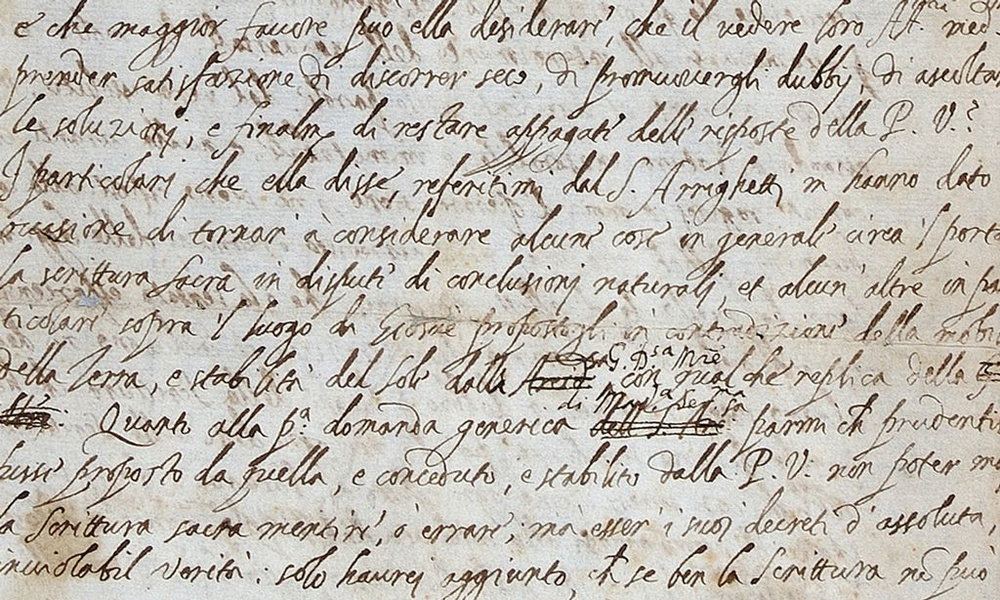 e che maggior favore può ella desiderare, che il vedere loro AA.
prender satisfazione di discorrer seco, di promuovergli dubbij, di ascoltar
le soluzionj, e finalm.e di restare appagate delle risposte della P. V.?
I particolari che ella disse, referitimi dal S. Arrighetti, m hanno dato
occasione di tornar à considerare alcune cose in generale circa 'l porta
la scrittura sacra in dispute di conclusionj naturalj, et alcun' altre in pa
ticolare sopra 'l luogo di Giosuè propostogli in contradizione della mobi
della Terra, e stabilità del Sole dalla G. D.sa M.re con qualche replica della
di M. Ser.ma
Quanto alla p.a domanda generica parmi ch prudentis
fusse proposto da quella, e conceduto, e stabilito dalla P. V. non poter m
la Scrittura sacra mentire, ò errare; mà esser i suoi decreti d' assoluta,
inviolabil verità: solo havrej aggiunto, ch se ben la Scrittura nõ può